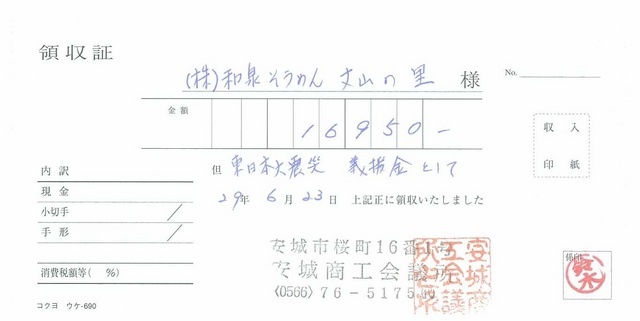 領収証
(株)和泉そうめん 丈山の里 様
No.
金額 16950-
収入
印紙
但 東日本大震災 義援金として
29年 6月 23日 上記正に領収いたしました
内訳
現金
小切手 /
手形 /
消費税額等( %)
コクヨ ウケ-690
安城市桜町16番1号
安城商工会議所
(0566)76-5175
安城商工会議所之印
係印